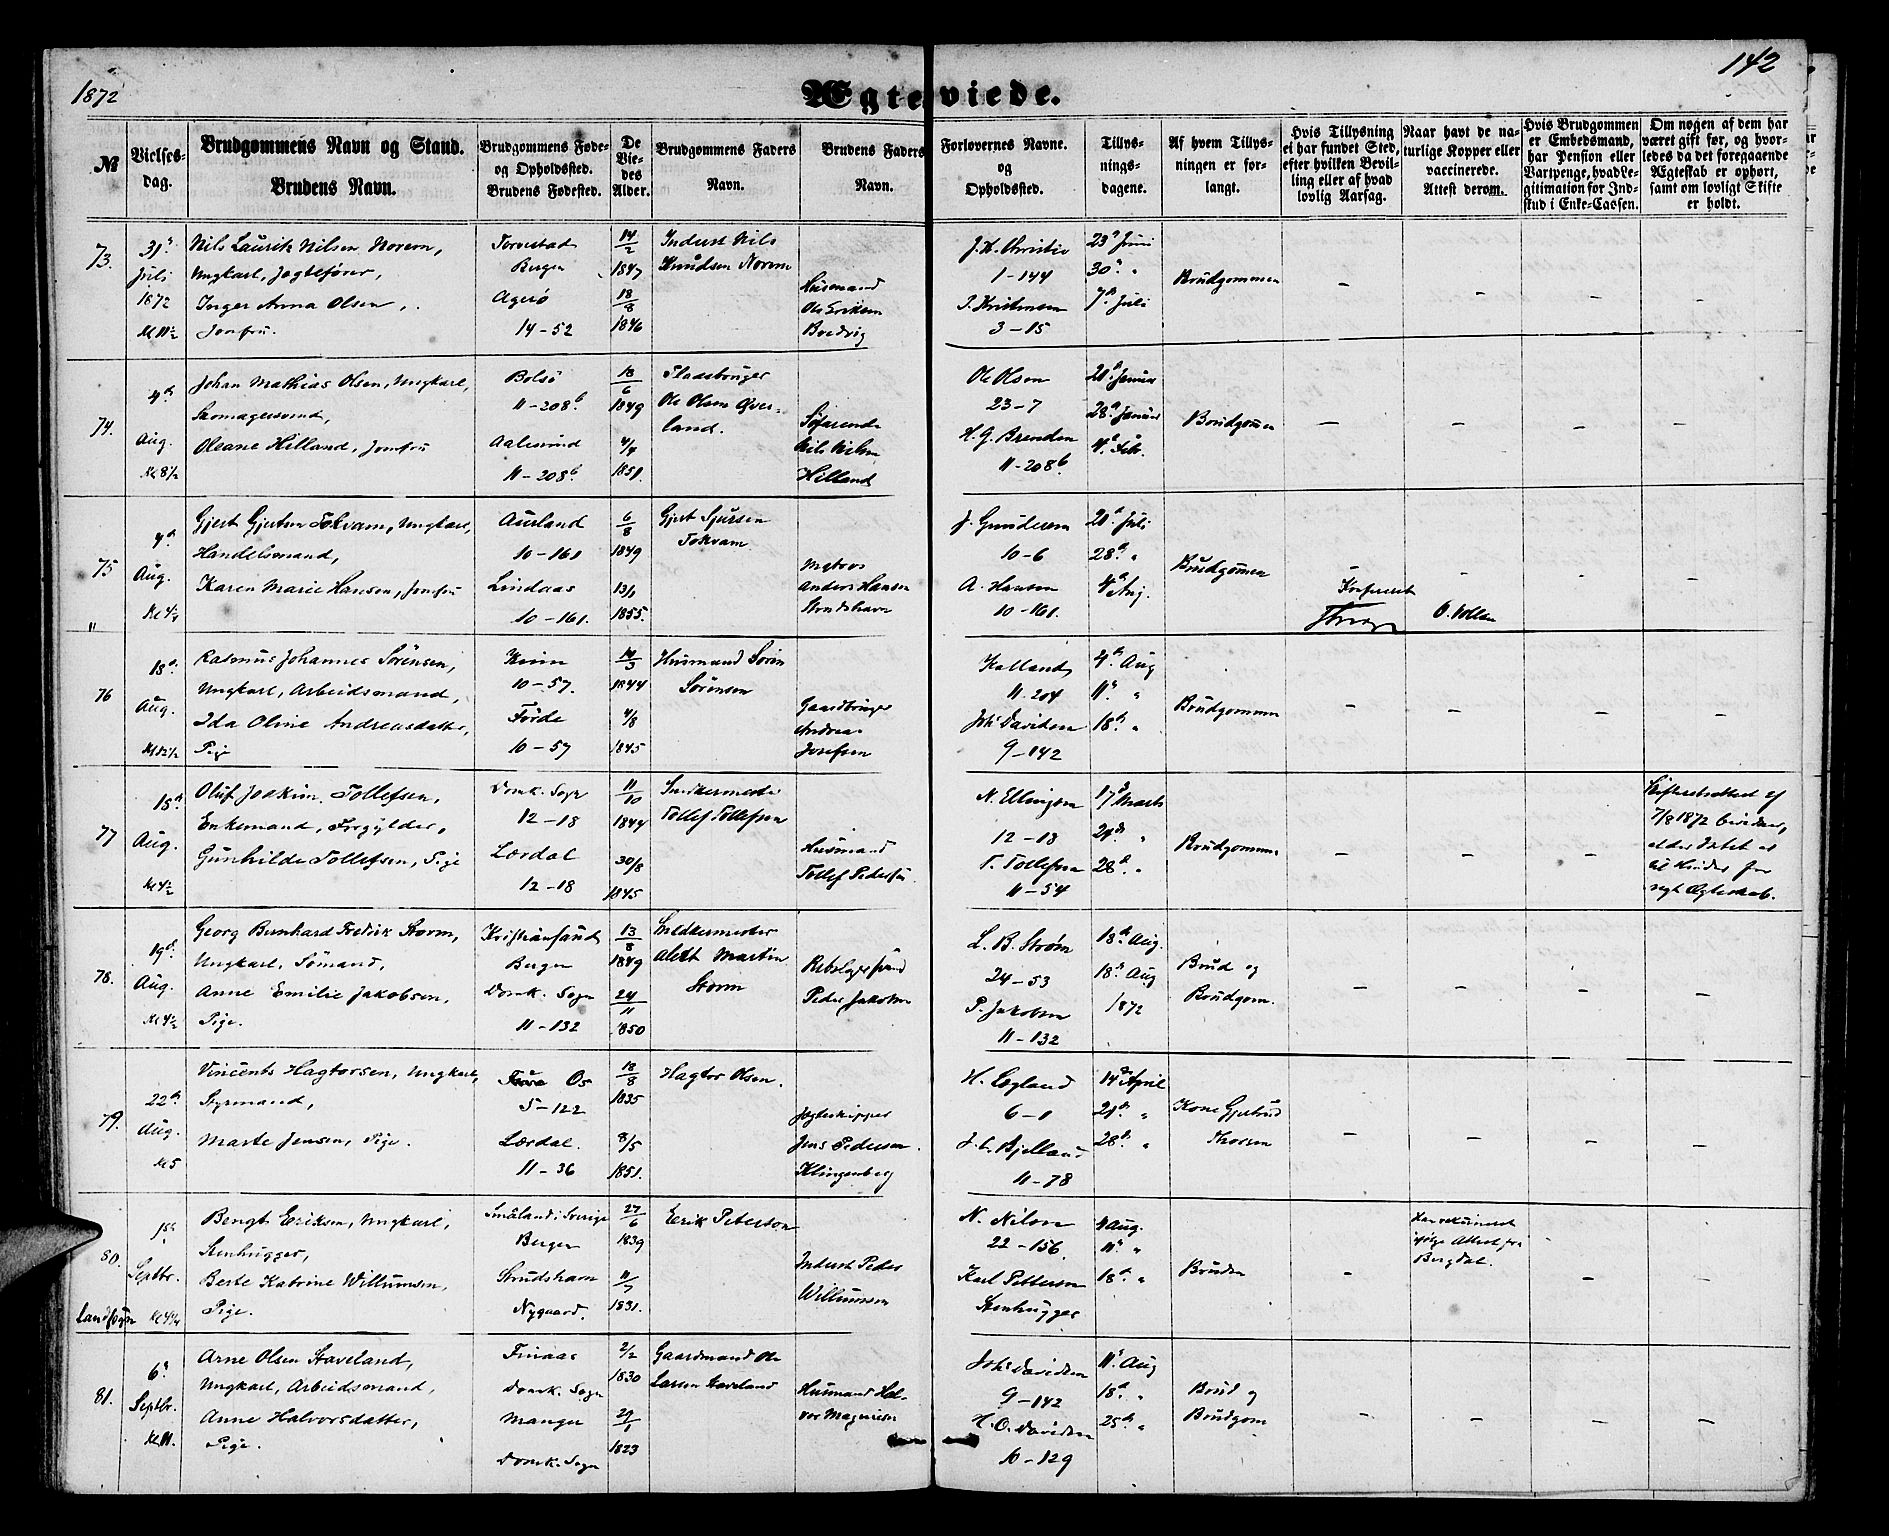 1872
142
Ægteviede.
№
Vielses-
dag.
Brudgommens Navn og Stand.
Brudens Navn.
Brudgommens Føde-
og Opholdssted.
Brudens Fødested.
De
Vie-
des
Alder.
Brudgommens Faders
Navn.
Brudens Faders
Navn.
Forlovernes Navne.
og
Opholdssted.
Tillys-
nings-
dagene.
Af hvem Tillys-
ningen er for-
langt.
Hvis Tillysning
ei har fundet Sted,
efter hvilken Bevil-
ling eller af hvad
lovlig Aarsag.
Naar havt de na-
turlige Kopper eller
vaccinerede.
Attest derom.
Hvis Brudgommen
er Embedsmand,
har Pension eller
Vartpenge, hvad Le-
gitimation for Ind-
skud i Enke-Cassen.
Om nogen af dem har
været gift før, og hvor-
ledes da det foregaaende
Ægteskab er ophørt,
samt om lovligt Skifte
er holdt.
73.
31te
Juli
1872
Kl 11½
Nils Laurik Nilsen Norem,
Ungkarl, Jægtefører,
Inger Anna Olsen,
Jomfru.
Torvestad
Bergen
Agerø
14-52
14/2
1847
18/8
1846
Inderst Nils
Knudsen Norem
Husmand
Ole Eriksen
Boedvig
J. K. Christie
1-144
I. Kristensen
3-15
23de Juni
30te "
7de Juli
Brudgommen
- - - -
74.
4de
Aug.
Kl 8½
Johan Mathias Olsen, Ungkarl,
Skomagersvend,
Oleane Hilland, Jomfru
Bolsø
11-208b.
Aalesund
11-208b.
18/6
1849
4/4
1851.
Pladsbruger
Ole Olsen Øver-
land.
Søfarende
Nils Nilsen
Hilland
Ole Olsen
23-7
H. G. Brenden
11-208b.
21de Januar
28de Januar
4de Feb.
Brudgommen
- - - -
75
4de
Aug.
Kl 4¼
Gjert Gjertsen Tokvam, Ungkarl,
Handelsmand,
Karen Marie Hansen, Jomfru
Aurland
10-161
Lindaas
10-161.
6/8
1849
13/1
1855.
Gjert Sjursen
Tokvam
Matros
Anders Hansen
Strudshavn
J. Gundersen
10-6
A. Hansen
10-161.
21de Juli
28de "
4de Aug.
Brudgommen
- - - -
Konfereret
O. Vollan
76
18de
Aug.
Kl 12½
Rasmus Johannes Sørensen,
Ungkarl, Arbeidsmand,
Ida Oline Andreasdatter,
Pige
Kinn
10-57.
Førde
10-57
14/3
1844
4/8
1845
Husmand Sørin
Sørensen
Gaardbruger
Andreas
Josefsen
Kalland
11-204
Johs Davidsen
9-142
4de Aug
11te "
18de "
Brudgommen
- - - -
77
18de
Aug.
Kl 4½
Oluf Joakim Tollefsen,
Enkemand, Forgylder,
Gunhilde Tollefsen, Pige
Domk. Sogn
12-18
Lærdal
12-18
11/10
1844
30/8
1845
Snedkermester
Tollef Tollefsen
Husmand
Tollef Pedersen
N. Ellingsen
12-18
T. Tollefsen
11-54
17de Marts
21de "
28de "
Brudgommen
- - -
Skifteretsattest af
7/8 1872 bevidner,
at der Intet er
til Hinder for
nyt Ægteskab.
78.
19de
Aug.
Kl 4½
Georg Bernhard Fredrik Storm,
Ungkarl, Sømand,
Anne Emilie Jakobsen,
Pige.
Kristiansand
Bergen
Domk. Sogn
11-132
13/8
1849
24/11
1850
Snedkermester
Aldt Martin
Storm
Rebslagersvend
Peder Jakobsen
L. B. Strøm
24-53
P. Jakobsen
11-132
18de Aug.
18de Aug
1872
Brud og
Brudgom.
- - - -
79.
22de
Aug.
Kl 5
Vincents Hagtorsen, Ungkarl,
Styrmand,
Marte Jensen, Pige.
Os
5-122
Lærdal.
11-36
18/8
1835
8/5
1851.
Hagtor Olsen.
Jægteskipper
Jens Pedersen
Klingenberg
H. Løgland
6-1
J. C. Bjelland
11-78
14de April
21de "
28de "
Kone Gjertrud
Thorsen
- - - -
80.
Landsogn
1ste
Septbr.
Kl 4¾
Bengt Eriksen, Ungkarl,
Stenhugger,
Berte Katrine Willumsen,
Pige.
Småland i Sverige
Bergen
Strudshavn
Nygaard.
27/6
1839
11/7
1831.
Erik Peterson
Inderst Peder
Willumsen
N. Nilsen
22-156.
Karl Petterson
Stenhugger
4 Aug.
11te "
18de "
Bruden
-
Har vakcineret
ifølge Attest fra
Bergdal.
- -
81.
6te
Septbr.
Kl 11.
Arne Olsen Staveland,
Ungkarl, Arbeidsmand,
Anne Halvorsdatter,
Pige.
Finaas
Domk. Sogn
Manger
Domk. Sogn
2/2
1830
29/1
1823
Gaardmand Ole
Larsen Staveland
Husmand Hal-
vor Magnusen
Johs Davidsen
9-142
H. O. Davidsen
10-129
11te Aug
18de "
25de "
Brud og
Brudgom
- - - -